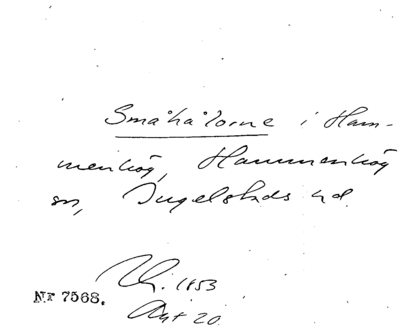 Småhålorne i Ham-
menhög, Hammenhög
sn, Ingelstads hd.
1853
Nr 7568.
Akt 20.